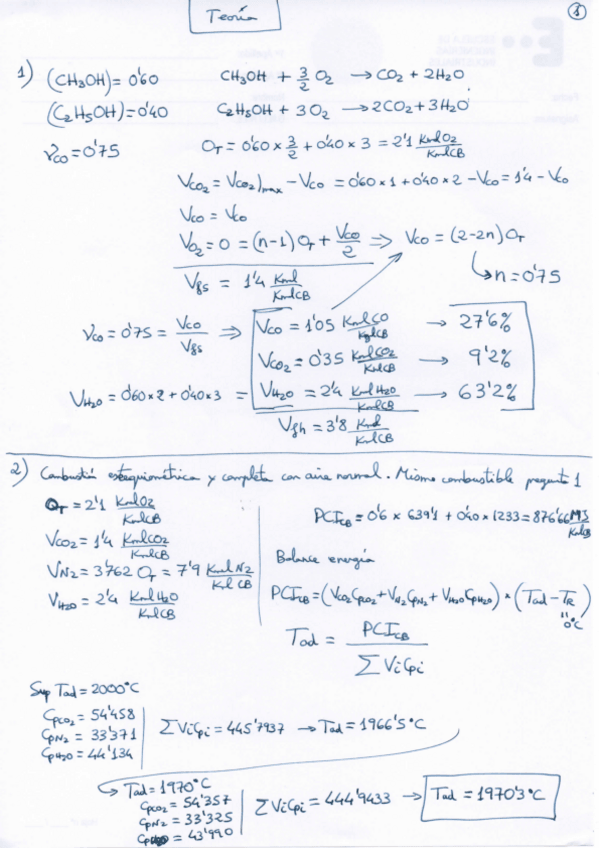 Teoría
1
1) (CH3OH) = 0'60 CH3OH + 3/2 O2 → CO2 + 2H2O
(C2H5OH) = 0'40 C2H5OH + 3O2 → 2CO2 + 3H2O
γco = 0'75 OT = 0'60 × 3/2 + 0'40 × 3 = 2'1 KmlO2/KmlCB
VCO2 = VCO2)max − Vco = 0'60 × 1 + 0'40 × 2 − Vco = 1'4 − Vco
Vco = Vco
VO2 = 0 = (n-1) OT + Vco/2 ⇒ Vco = (2-2n) OT
Vgs = 1'4 Kml/KmlCB ↳ n = 0'75
γco = 0'75 = Vco/Vgs ⇒ Vco = 1'05 KmlCO/KglCB → 27'6%
VCO2 = 0'35 KmlCO2/KmlCB → 9'2%
VH2O = 0'60 × 2 + 0'40 × 3 = VH2O = 2'4 KmlH2O/KmlCB → 63'2%
Vgh = 3'8 Kml/KmlCB
2) Combustión estequiométrica y completa con aire normal. Mismo combustible pregunta 1
OT = 2'1 KmlO2/KmlCB
PCICB = 0'6 × 639'1 + 0'40 × 1233 = 876'66 MJ/KmlCB
VCO2 = 1'4 KmlCO2/KmlCB
Balance energía
VN2 = 3'762 OT = 7'9 KmlN2/KmlCB
PCICB = (VCO2 CpCO2 + VN2 CpN2 + VH2O CpH2O) * (Tad − TR)
VH2O = 2'4 KmlH2O/KmlCB
" 0°C
Tad = PCICB / ΣViCpi
Sup Tad = 2000°C
CpCO2 = 54'458
CpN2 = 33'371 ΣViCpi = 445'7937 → Tad = 1966'5°C
CpH2O = 44'134
→ Tad = 1970°C
CpCO2 = 54'357
CpN2 = 33'325 ΣViCpi = 444'9433 → Tad = 1970'3°C
CpH2O = 43'990